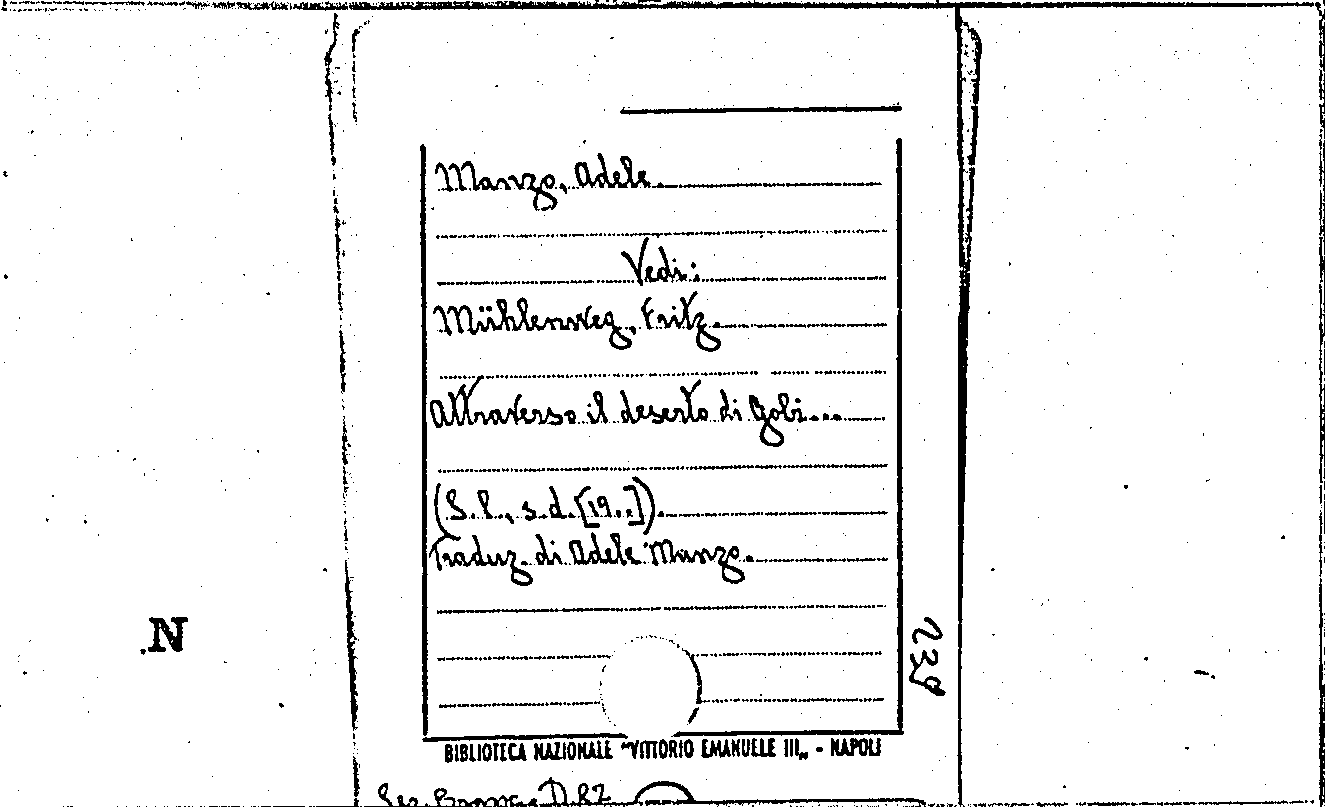 Manzo, Adele.
Vedi:
Mühlenweg, Fritz.
Attraverso il deserto di Gobi...
(S.l., s.d. [19..]).
Traduz. di Adele Manzo.
N
239
BIBLIOTECA NAZIONALE "VITTORIO EMANUELE III„ - NAPOLI